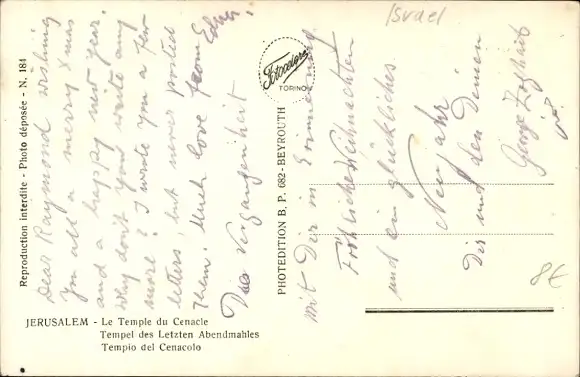 Israel
Dear Raymond wishing
you all a merry xmas
and a happy new year.
Why don't you write any
more? I wrote you a few
letters, but never posted
them. Much love from
Edner.
Die Vergangenheit
mit Dir in Erinnerung
Fröhliche Weihnachten
und ein glückliches
Neujahr
Dir und den Deinen
George
8€
Reproduction interdite - Photo déposée - N. 184
Fotocelere
TORINO
PHOTEDITION B. P. 682 - BEYROUTH
JERUSALEM - Le Temple du Cenacle
Tempel des Letzten Abendmahles
Tempio del Cenacolo